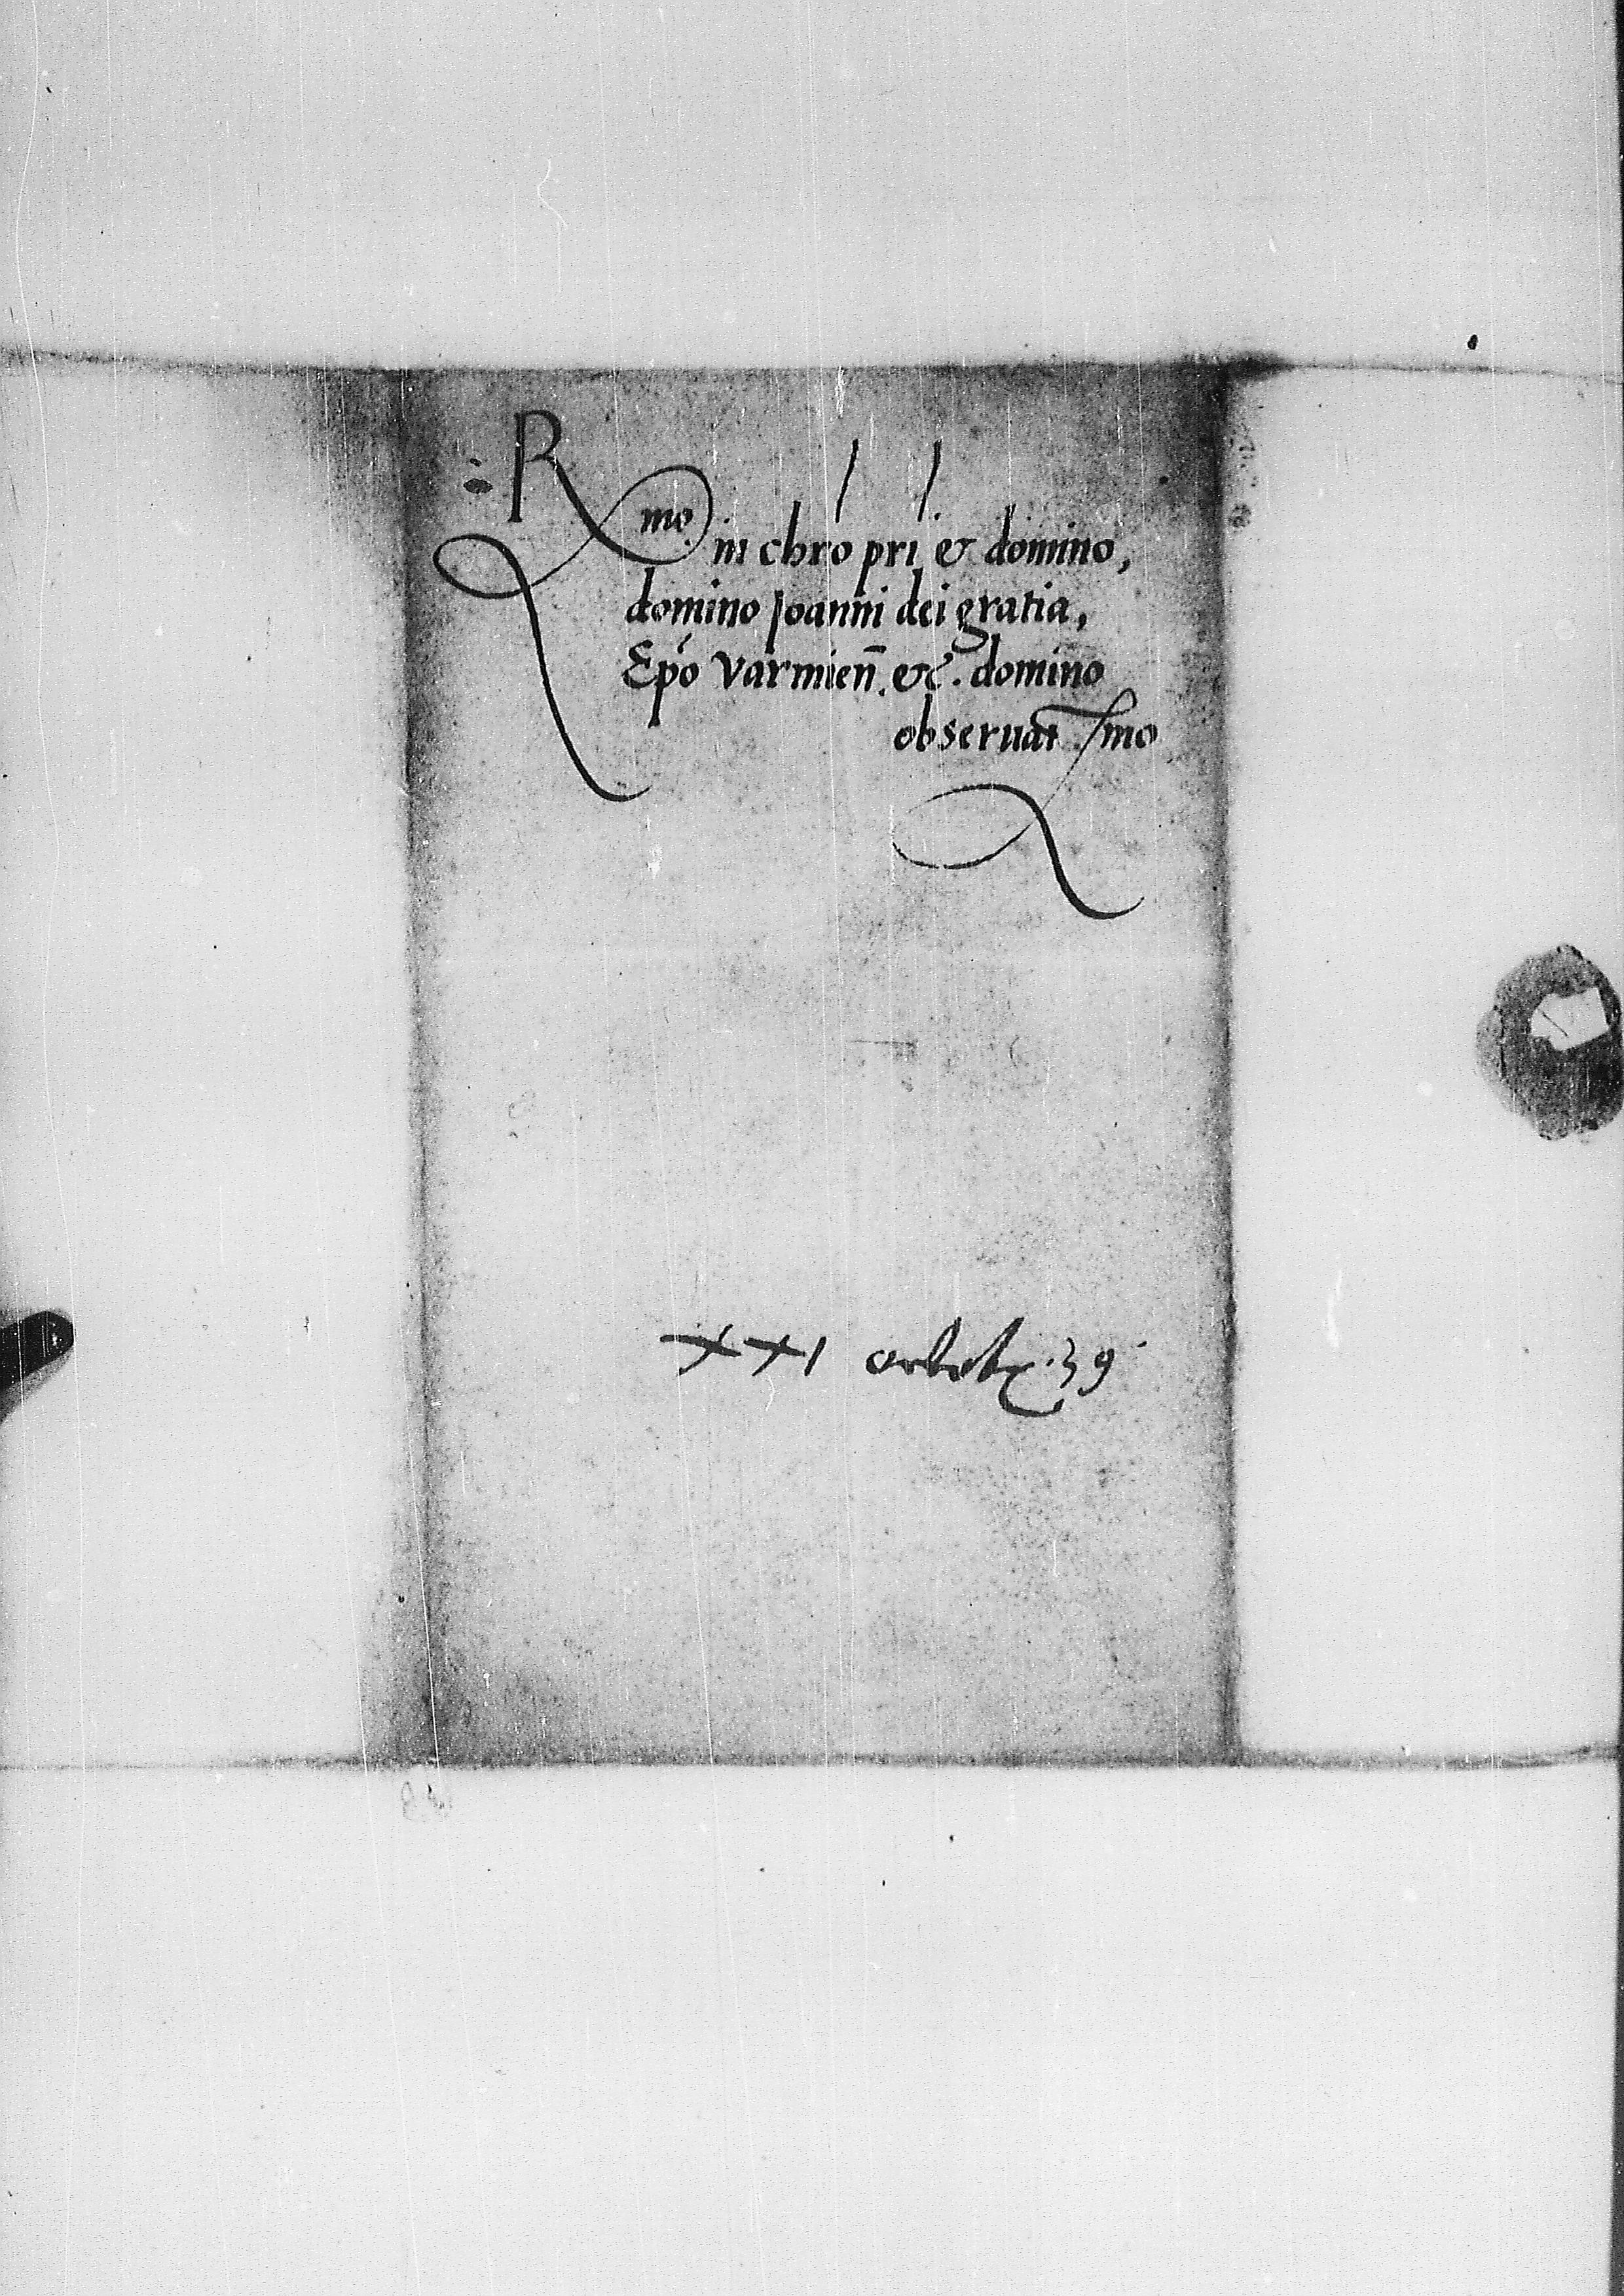 Rmo. in chro pri & domino,
domino Joanni dei gratia,
Epo Varmien̄. &c. domino
obseruat mo
XXI octobr. 39